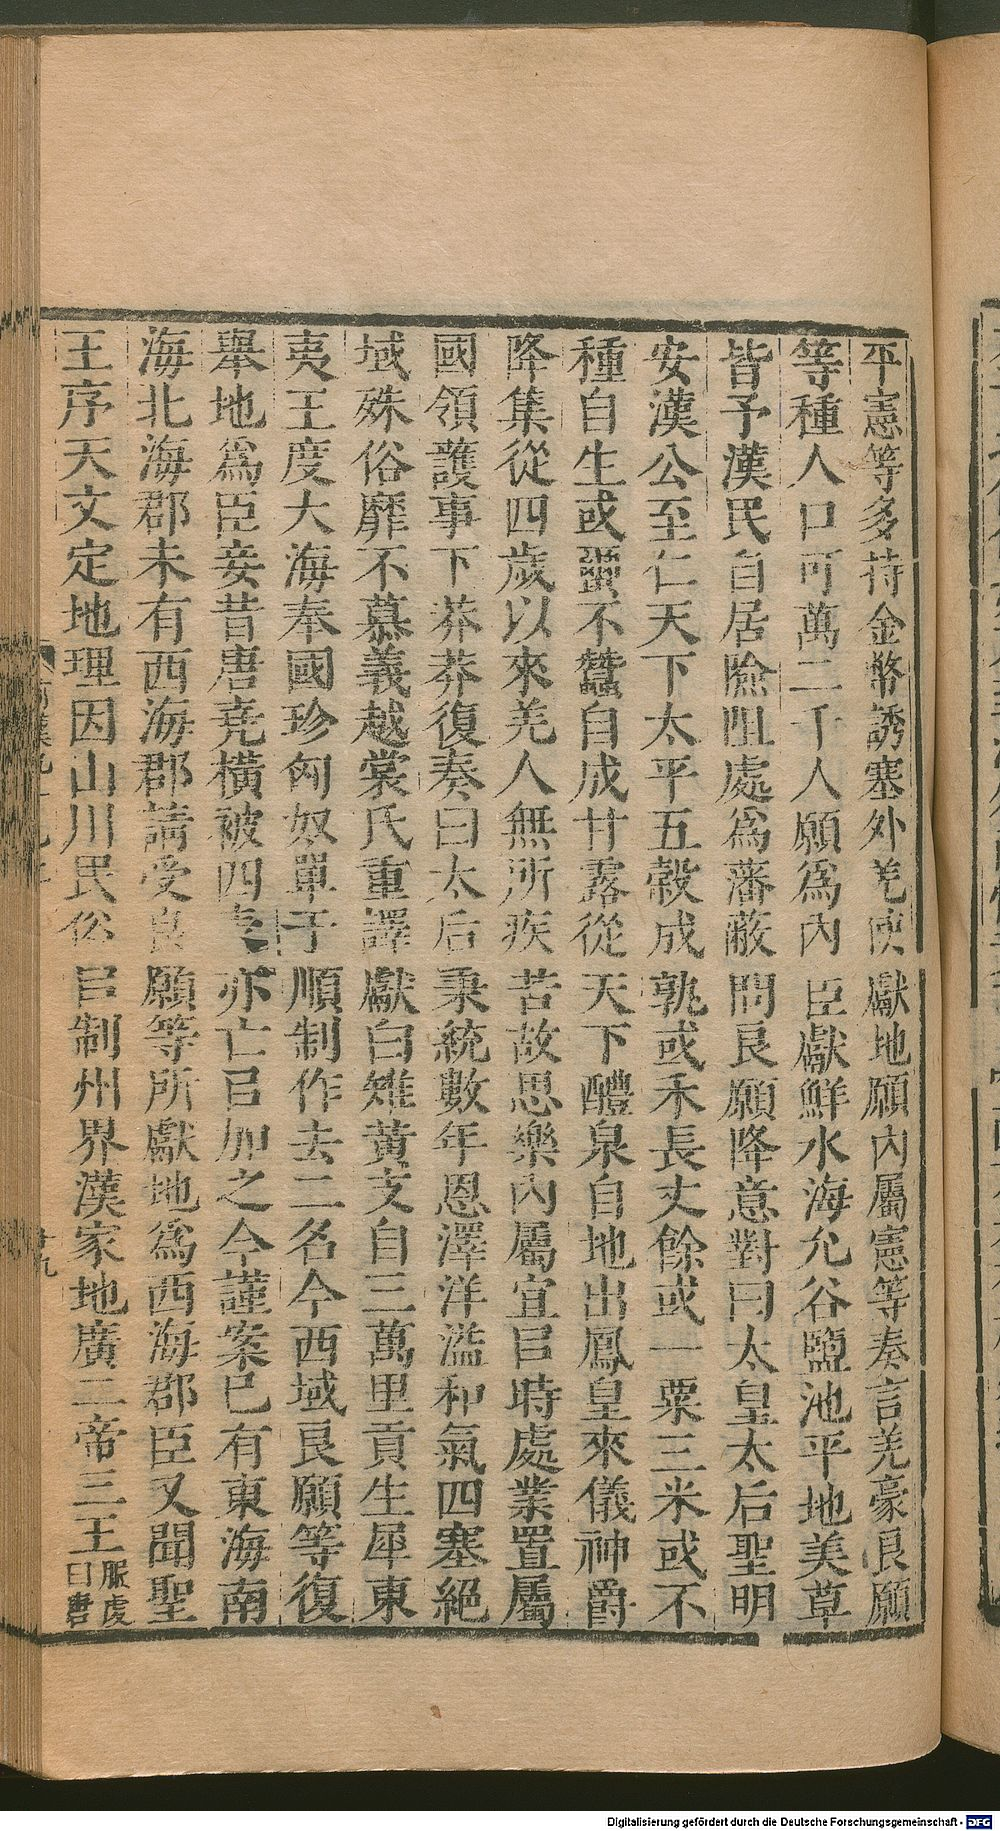 平憲等多持金幣誘塞外羌使獻地願內屬憲等奏言羌豪良願
等種人口可萬二千人願爲內臣獻鮮水海允谷鹽池平地美草
皆予漢民自居險阻處爲藩蔽問良願降意對曰太皇太后聖明
安漢公至仁天下太平五穀成孰或禾長丈餘或一粟三米或不
種自生或蠒不蠶自成甘露從天下醴泉自地出鳳皇來儀神爵
降集從四歲以來羌人無所疾苦故思樂內屬宜㠯時處業置屬
國領護事下莽莽復奏曰太后秉統數年恩澤洋溢和氣四塞絕
域殊俗靡不慕義越裳氏重譯獻白雉黃支自三萬里貢生犀東
夷王度大海奉國珍匈奴單于順制作去二名今西域良願等復
舉地爲臣妾昔唐堯橫被四表亦亡㠯加之今謹案已有東海南
海北海郡未有西海郡請受良願等所獻地爲西海郡臣又聞聖
王序天文定地理因山川民俗㠯制州界漢家地廣二帝三王服虔曰唐
Digitalisierung gefördert durch die Deutsche Forschungsgemeinschaft - DFG